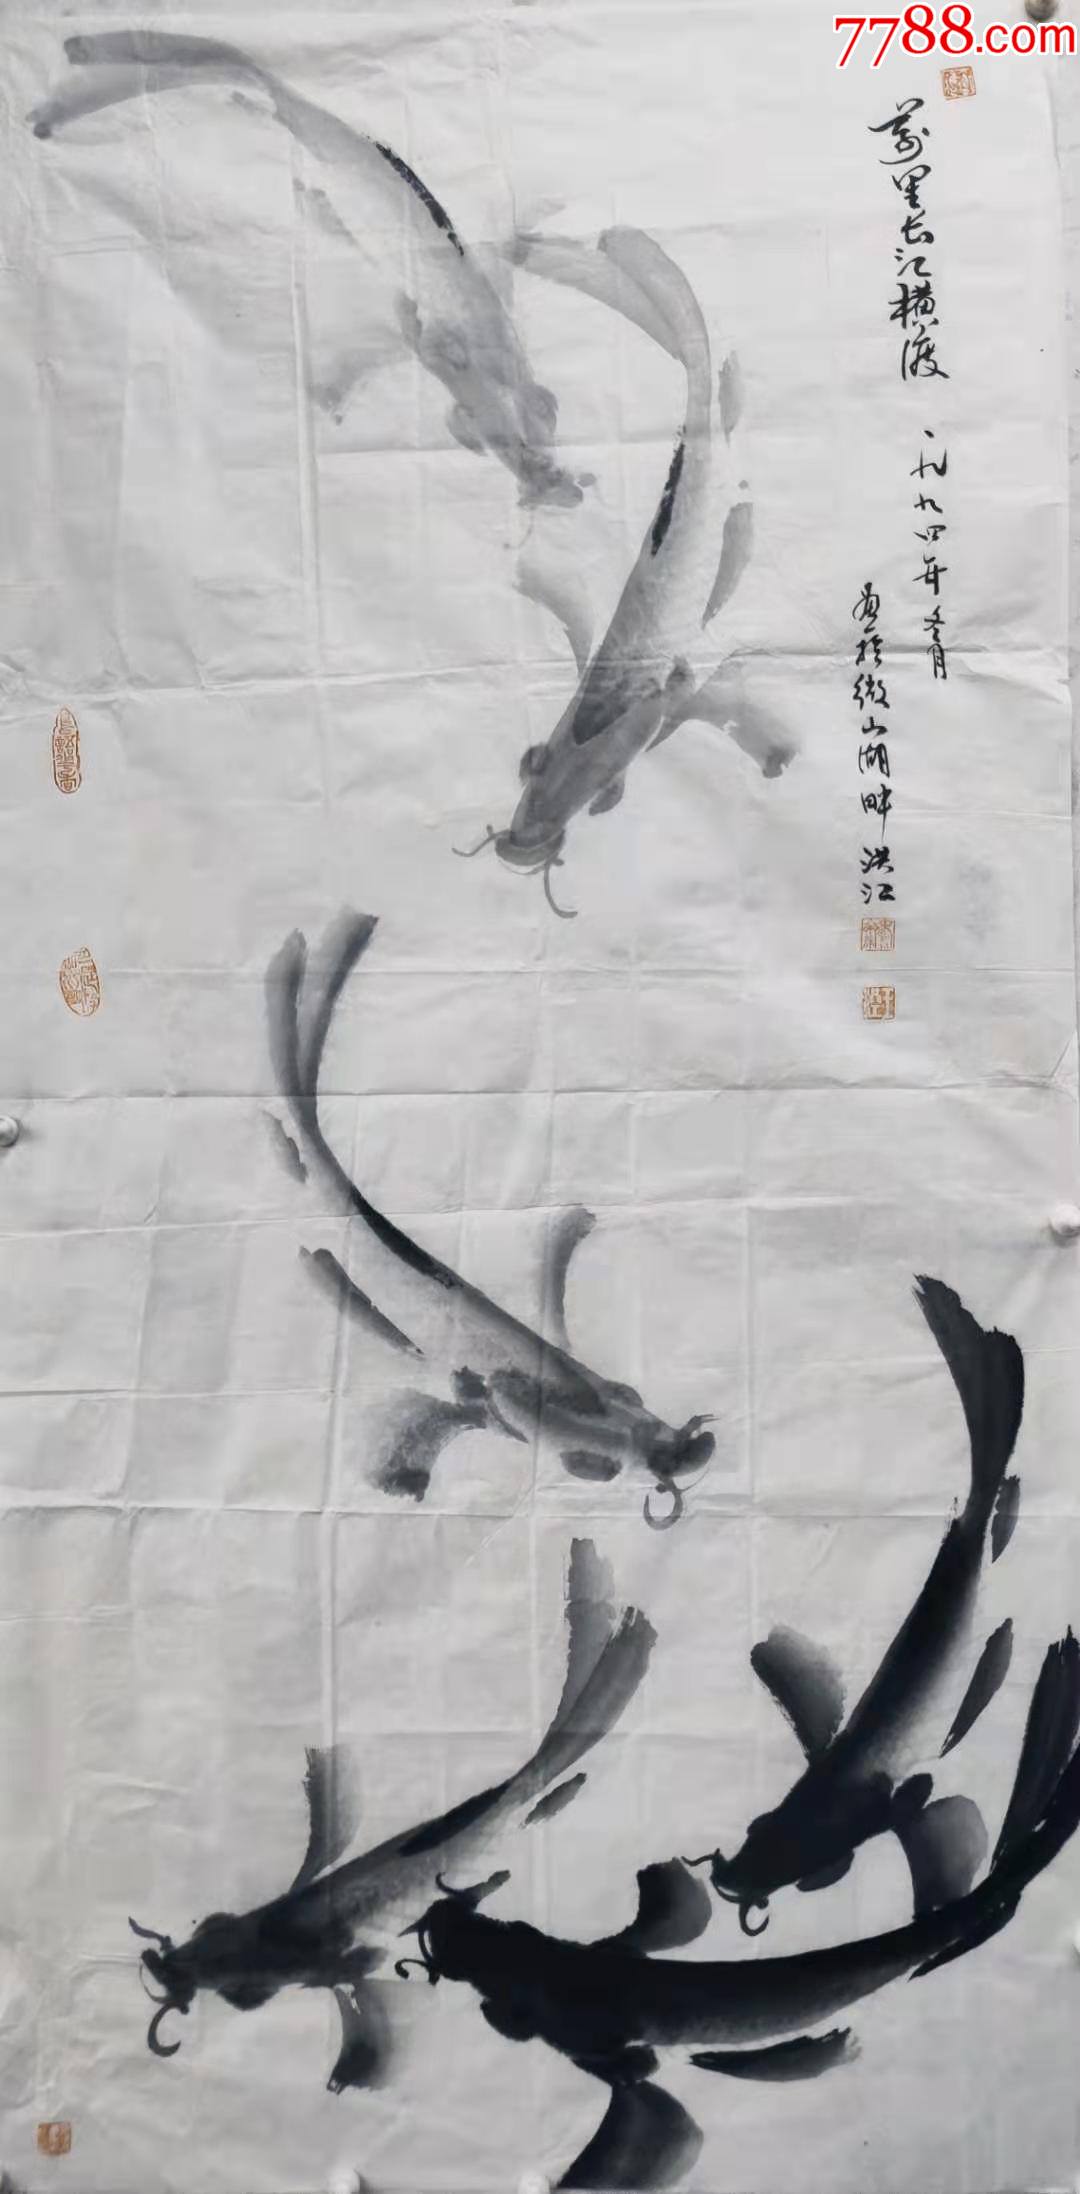 7788.com
萬里长江横渡
一九九四年冬月
画於微山湖畔洪江